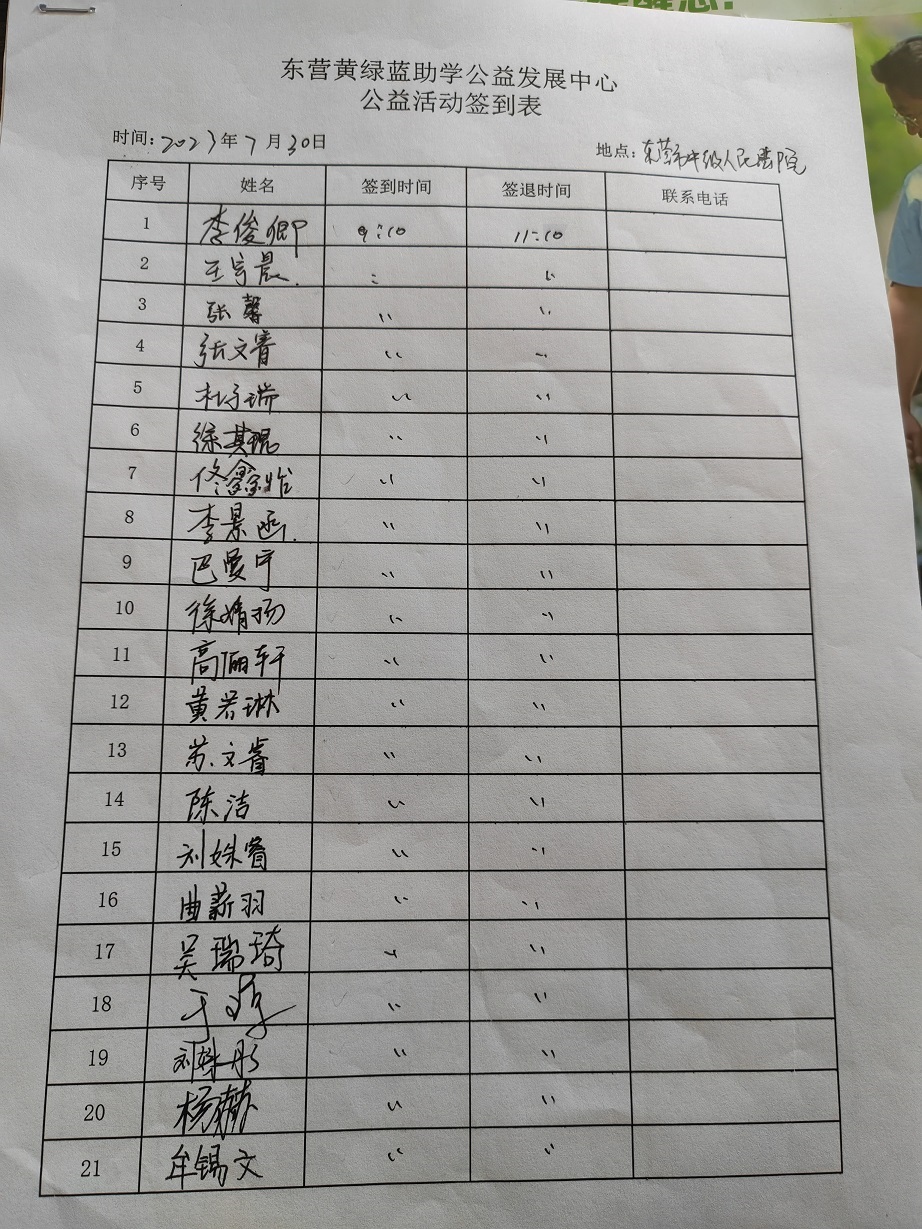 东营黄绿蓝助学公益发展中心
公益活动签到表
时间:2023年7月30日 地点:东营市中级人民法院
序号 姓名 签到时间 签退时间 联系电话
1 李俊卿 9:10 11:10
2 王宇晨. 〃 〃
3 张馨 〃 〃
4 张文睿 〃 〃
5 杜子瑞 〃 〃
6 徐其琨 〃 〃
7 佟鑫怡 〃 〃
8 李景函. 〃 〃
9 巴曼宁 〃 〃
10 徐婧扬 〃 〃
11 高俪轩 〃 〃
12 黄若琳 〃 〃
13 苏文睿 〃 〃
14 陈洁 〃 〃
15 刘姝睿 〃 〃
16 曲薪羽 〃 〃
17 吴瑞琦 〃 〃
18 于 〃 〃
19 刘姝彤 〃 〃
20 杨 〃 〃
21 牟锡文 〃 〃